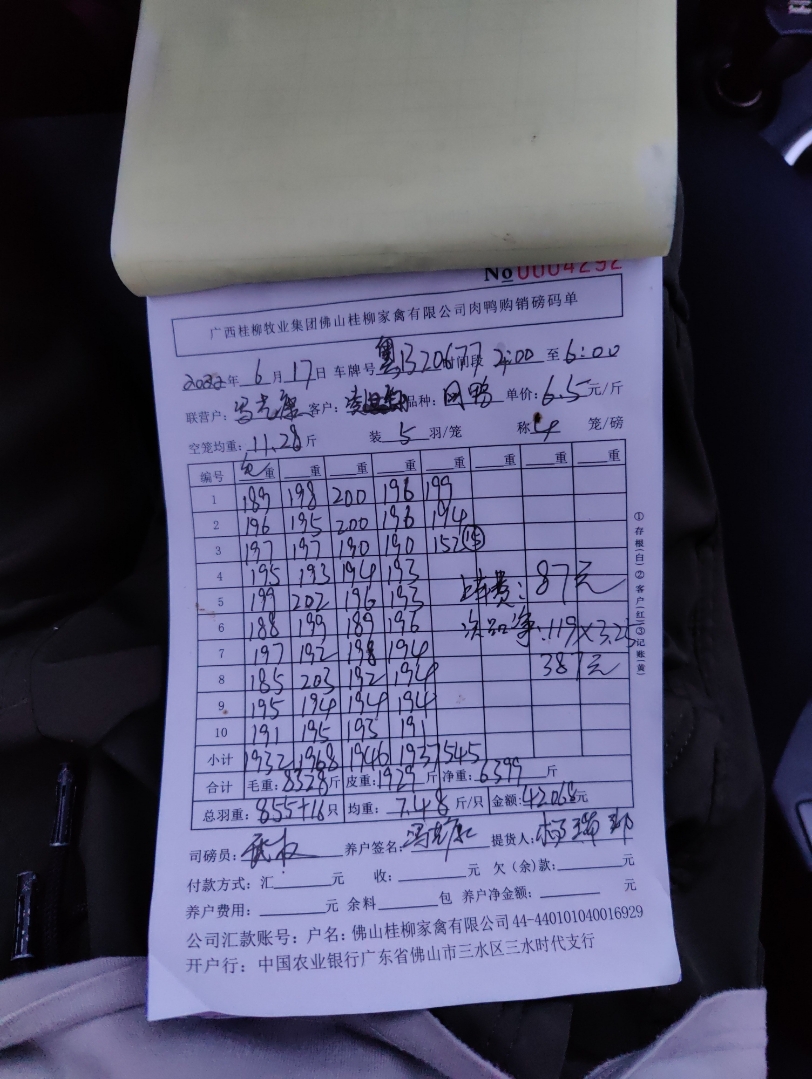 No 0004292
广西桂柳牧业集团佛山桂柳家禽有限公司肉鸭购销磅码单
2022年 6月17日 车牌号 粤J320677 时间段 2:00 至 6:00
联营户: 冯克康 客户: 品种: 肉鸭 单价: 6.5 元/斤
空笼均重: 11.28 斤 装 5 羽/笼 称 4 笼/磅
编号 毛重 重 重 重 重 重 重
1 189 198 200 196 199
2 196 195 200 196 194
3 197 197 190 190 152 (15)
4 195 193 194 193
5 199 202 196 193 球费: 87元
6 188 199 189 196 次品净: 119×3.25
7 197 192 198 194 387元
8 185 203 192 194
9 195 194 194 194
10 191 195 193 191
小计 1932 1968 1946 1937 545
合计 毛重: 8328 斤 皮重: 1929 斤 净重: 6399 斤
总羽重: 855+16 只 均重: 7.48 斤/只 金额: 42068 元
司磅员: 养户签名: 冯克康 提货人:
付款方式: 汇 元 收: 元 欠(余)款: 元
养户费用: 元 余料 包 养户净金额: 元
公司汇款账号: 户名: 佛山桂柳家禽有限公司 44-440101040016929
开户行: 中国农业银行广东省佛山市三水区三水时代支行
①存根(白)②客户(红)③记账(黄)